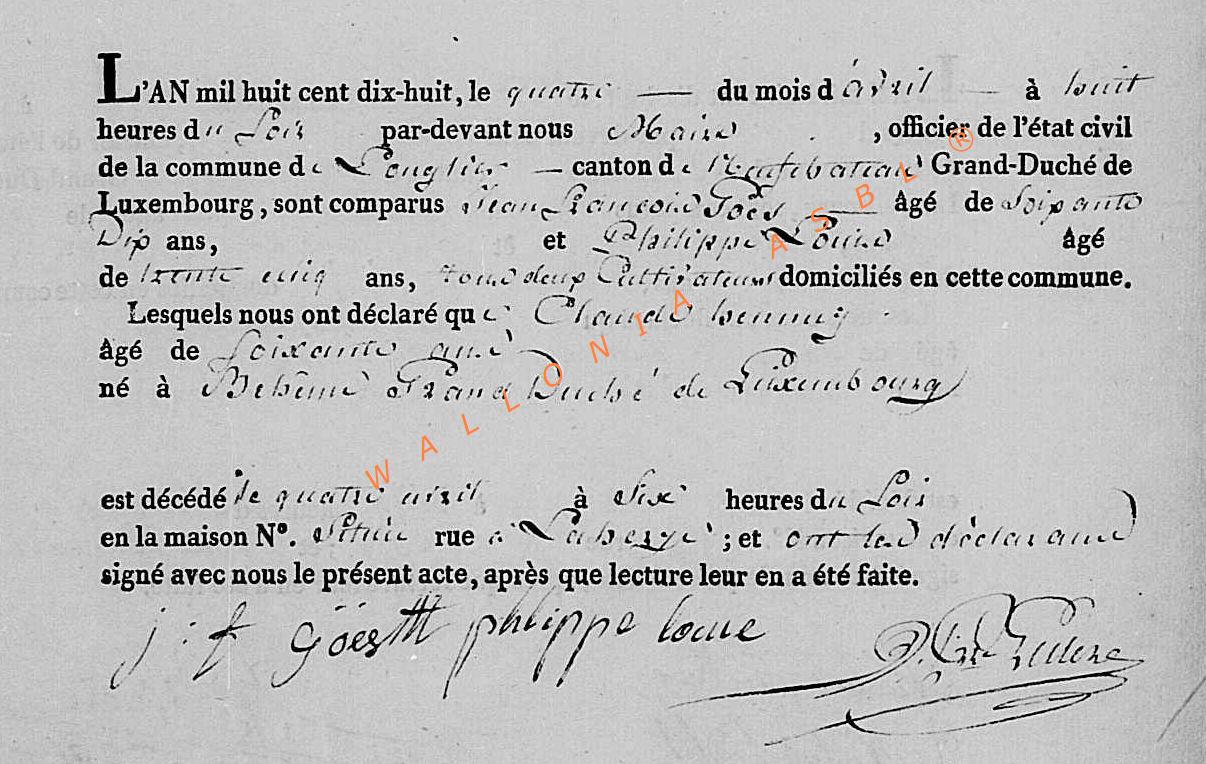 L'AN mil huit cent dix-huit, le quatre — du mois d'avril — à huit
heures du Soir par-devant nous Maire , officier de l'état civil
de la commune de Longlier — canton de Neufchateau Grand-Duché de
Luxembourg, sont comparus Jean François Goës — âgé de Soixante
Dix ans, et Philippe Louis âgé
de trente cinq ans, tous deux Cultivateurs domiciliés en cette commune.
Lesquels nous ont déclaré que Claude hennuy
âgé de Soixante ans
né à Behême Grand Duché de Luxembourg
est décédé le quatre avril à Six heures du Soir
en la maison Nº. Située rue à ; et ont les déclarans
signé avec nous le présent acte, après que lecture leur en a été faite.
j : f Göes philippe
WALLONIA ASBL ®